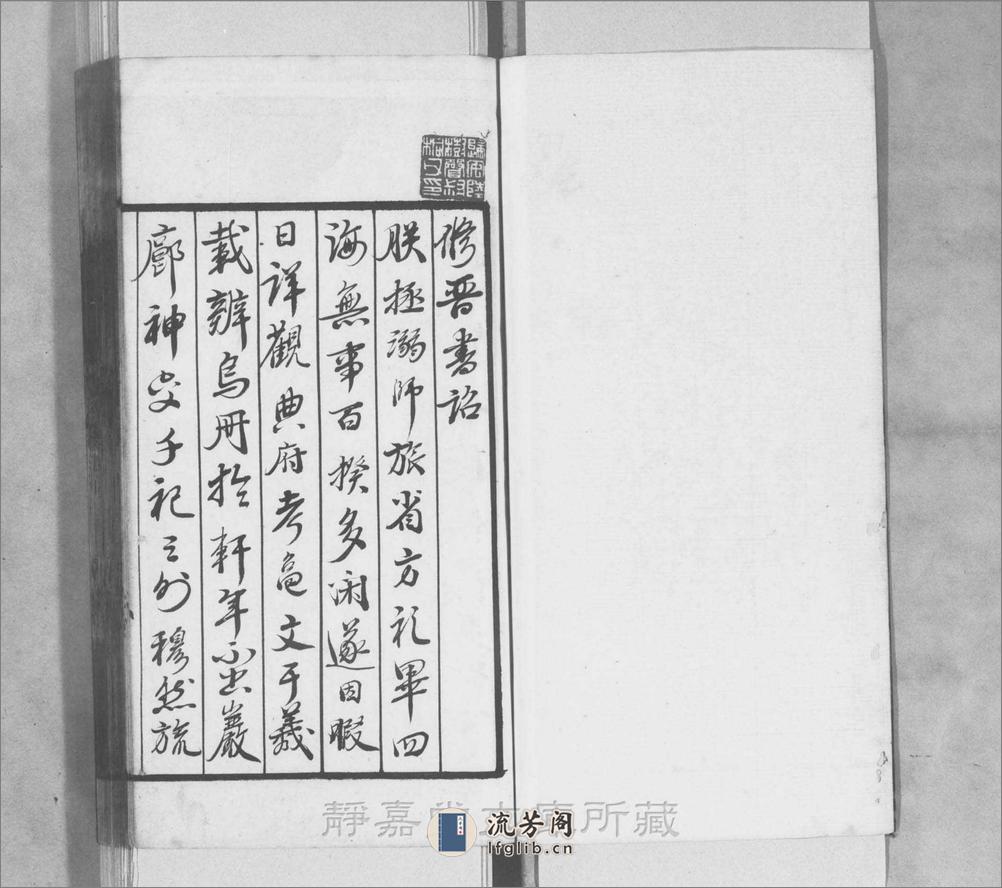 歸安陸
樹聲叔
桐父印
修晉書詔
朕拯溺師旅省方礼畢四
海無事百揆多閑遂因暇
日詳觀典府考龜文于羲
載辨烏冊於軒年不出巖
廊神交千祀之外穆然旒
靜嘉堂文庫所藏
流芳阁
lfglib.cn